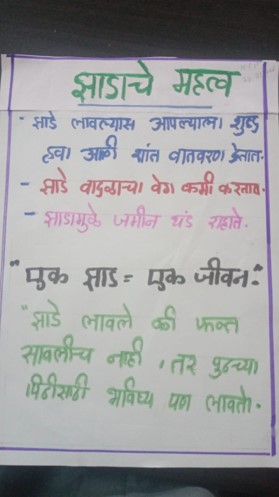 झाडाचे महत्व
- झाडे लावल्यास आपल्याला शुद्ध
हवा आणी शांत वातवरण देतात.
- झाडे वादळाचा वेग कमी करतात.
- झाडामुळे जमीन थंड राहाते.
"एक झाड = एक जीवन."
"झाडे लावले की फक्त
सावलीच नाही, तर पुढच्या
पिढीसाठी भविष्य पण लावतो.